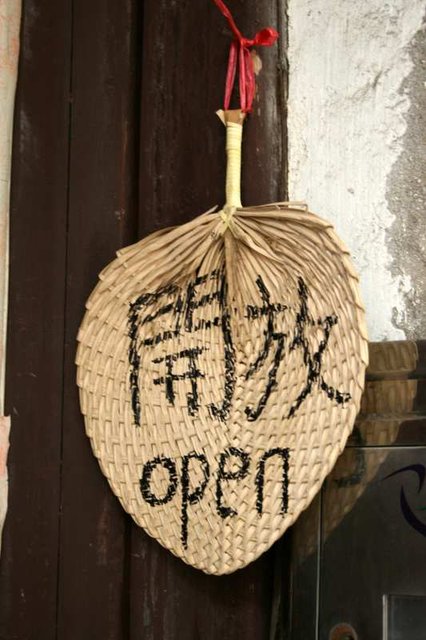 開放
open